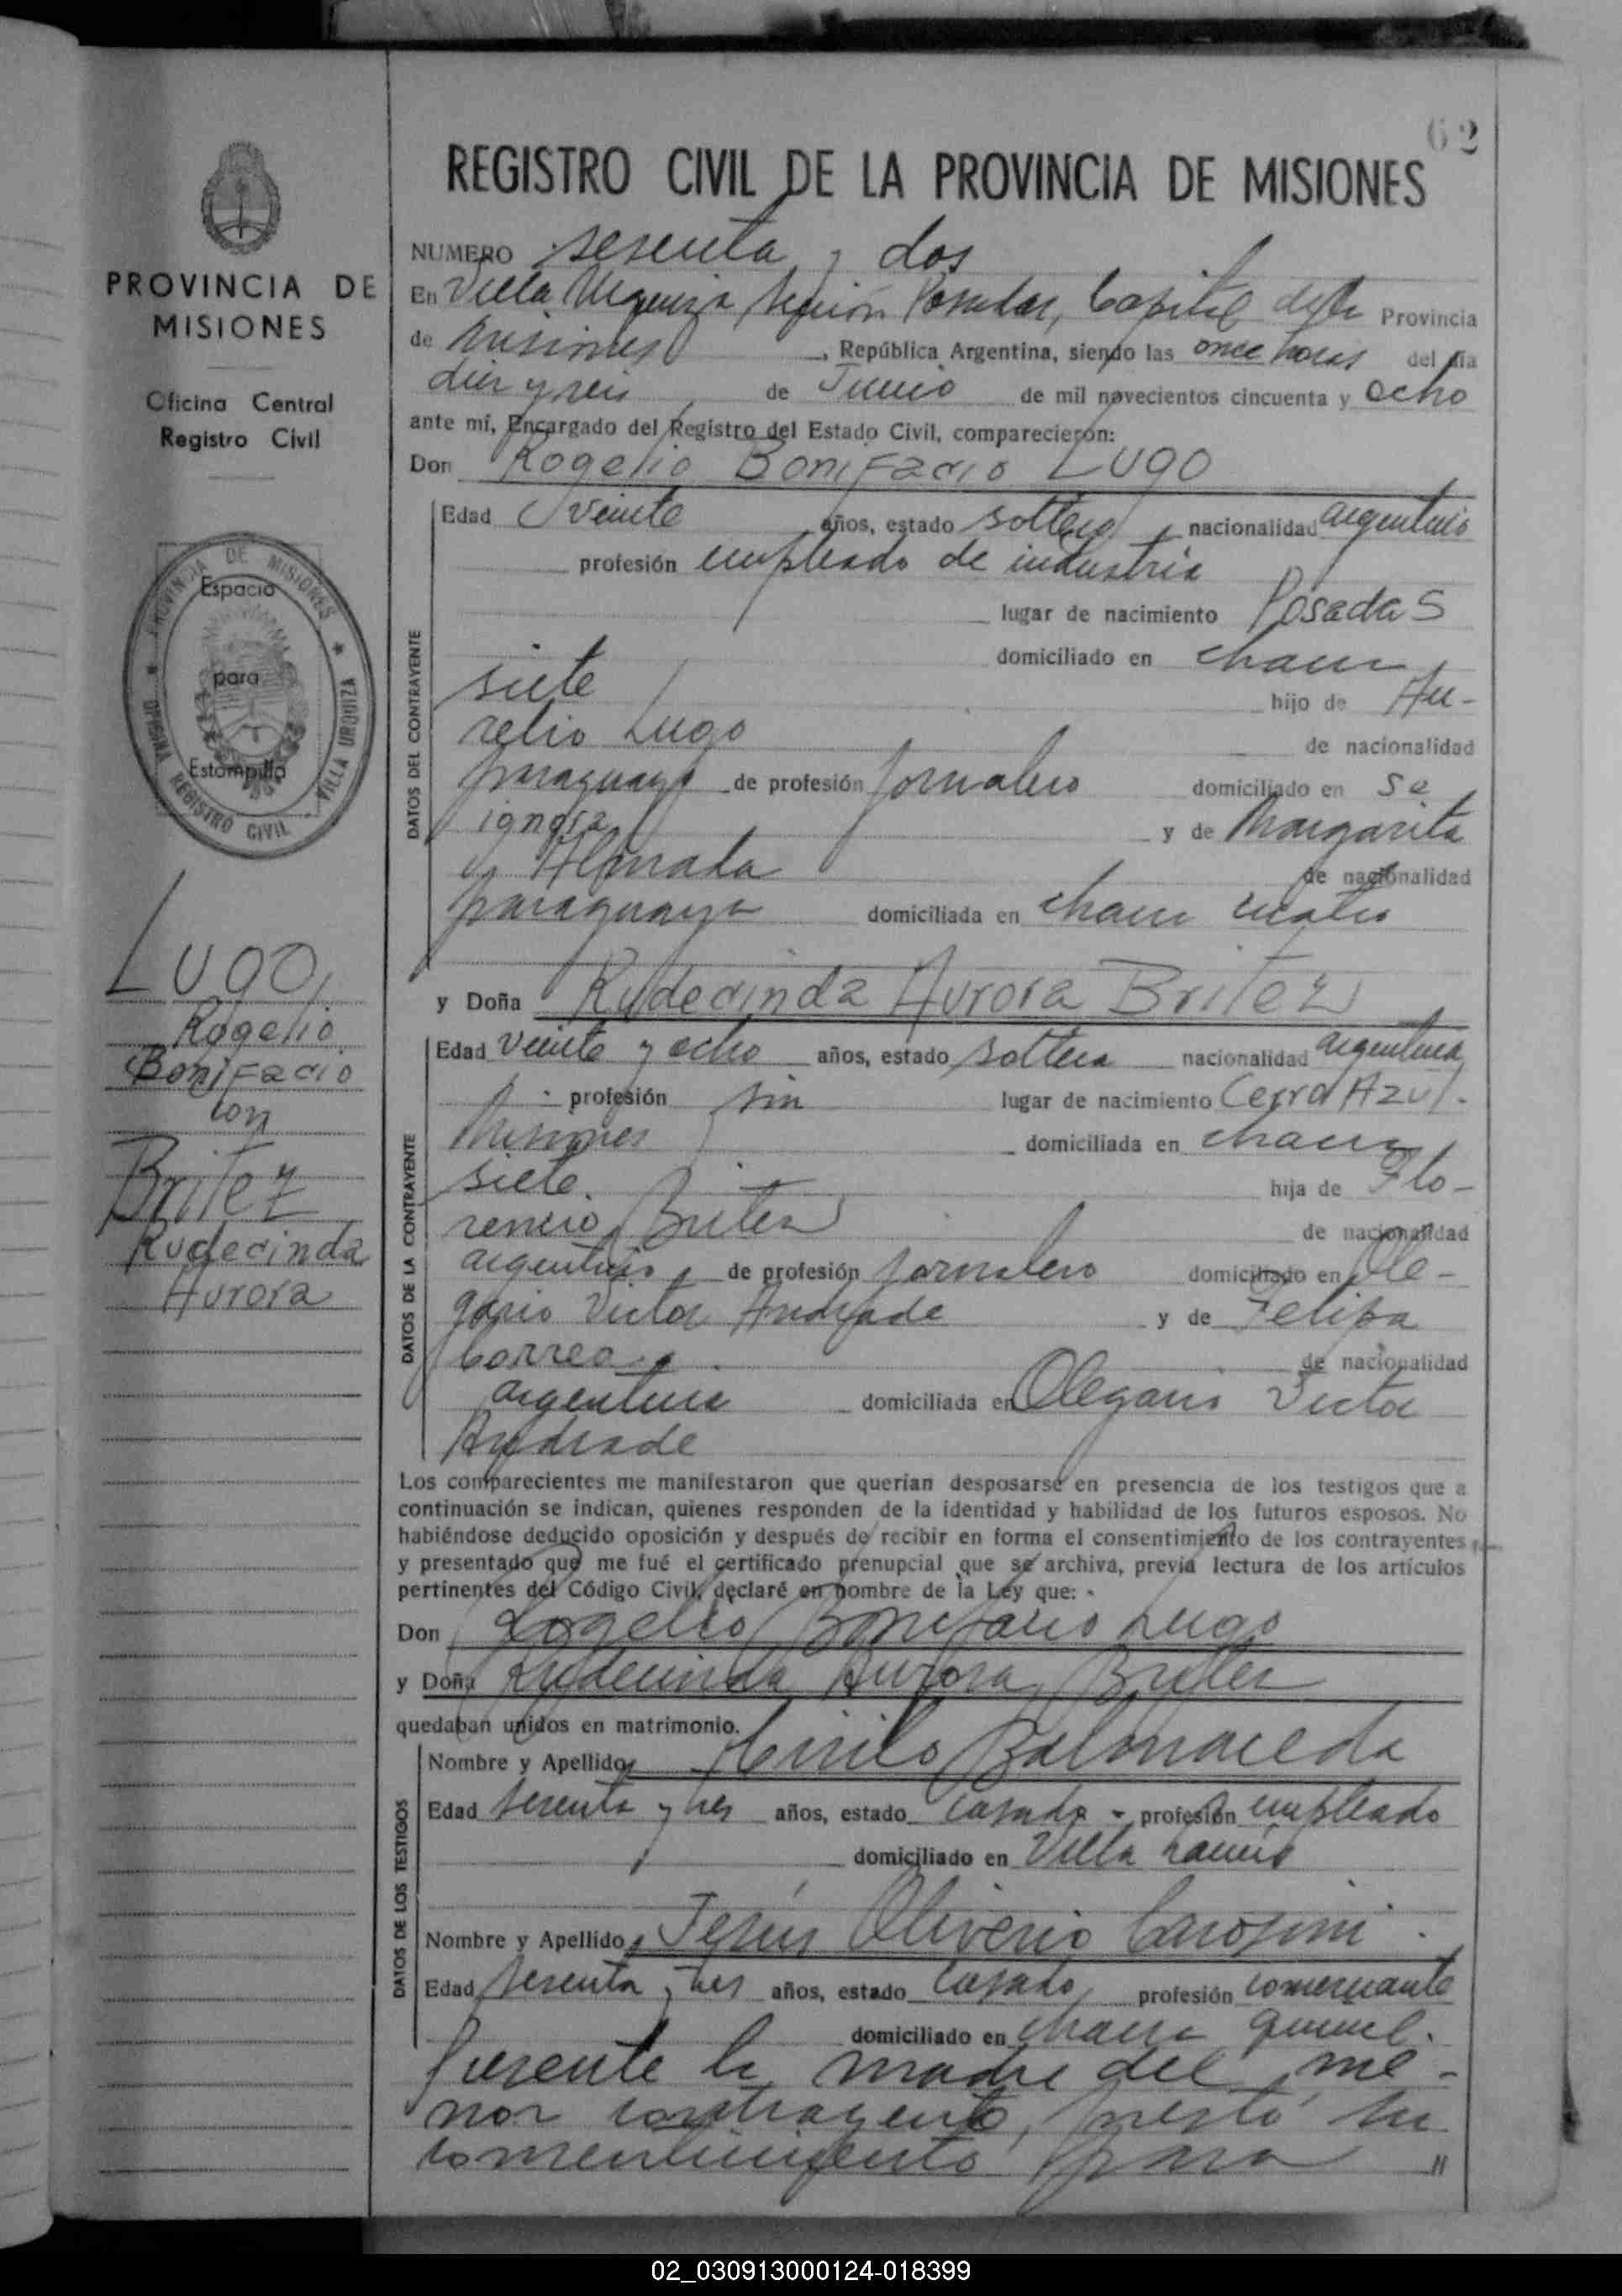 62
REGISTRO CIVIL DE LA PROVINCIA DE MISIONES
PROVINCIA DE
MISIONES
Oficina Central
Registro Civil
PROVINCIA DE MISIONES
OFICINA REGISTRO CIVIL VILLA URQUIZA
Espacio
para
Estampilla
Lugo,
Rogelio
Bonifacio
con
Britez
Rudecinda
Aurora
NUMERO sesenta y dos
En Villa Urquiza, Sección Posadas, Capital de la Provincia
de Misiones, República Argentina, siendo las once horas del día
diez y seis de Junio de mil novecientos cincuenta y ocho
ante mí, Encargado del Registro del Estado Civil, comparecieron:
Don Rogelio Bonifacio Lugo
DATOS DEL CONTRAYENTE
Edad veinte años, estado soltero, nacionalidad argentino
profesión empleado de industria
lugar de nacimiento Posadas
domiciliado en chacra
siete hijo de Au-
relio Lugo de nacionalidad
paraguayo de profesión jornalero domiciliado en se
ignora y de Margarita
Almada de nacionalidad
paraguaya domiciliada en chacra cuatro
y Doña Rudecinda Aurora Britez
DATOS DE LA CONTRAYENTE
Edad veinte y ocho años, estado soltera nacionalidad argentina
profesión sin lugar de nacimiento Cerro Azul-
Misiones domiciliada en chacra
siete. hija de Flo-
rencio Britez de nacionalidad
argentino, de profesión jornalero domiciliado en Ole-
gario Victor Andrade y de Felipa
Correa, de nacionalidad
argentina domiciliada en Olegario Victor
Andrade
Los comparecientes me manifestaron que querían desposarse en presencia de los testigos que a
continuación se indican, quienes responden de la identidad y habilidad de los futuros esposos. No
habiéndose deducido oposición y después de recibir en forma el consentimiento de los contrayentes
y presentado que me fué el certificado prenupcial que se archiva, previa lectura de los artículos
pertinentes del Código Civil, declaré en nombre de la Ley que:
Don Rogelio Bonifacio Lugo
y Doña Rudecinda Aurora Britez
quedaban unidos en matrimonio.
DATOS DE LOS TESTIGOS
Nombre y Apellido Cirilo Balmaceda
Edad sesenta y tres años, estado casado - profesión empleado
domiciliado en Villa Lanús
Nombre y Apellido Jesús Oliverio Carosini
Edad sesenta y tres años, estado casado, profesión comerciante
domiciliado en chacra
Presente la madre del me-
nor contrayente, prestó su
consentimiento para //
02_030913000124-018399